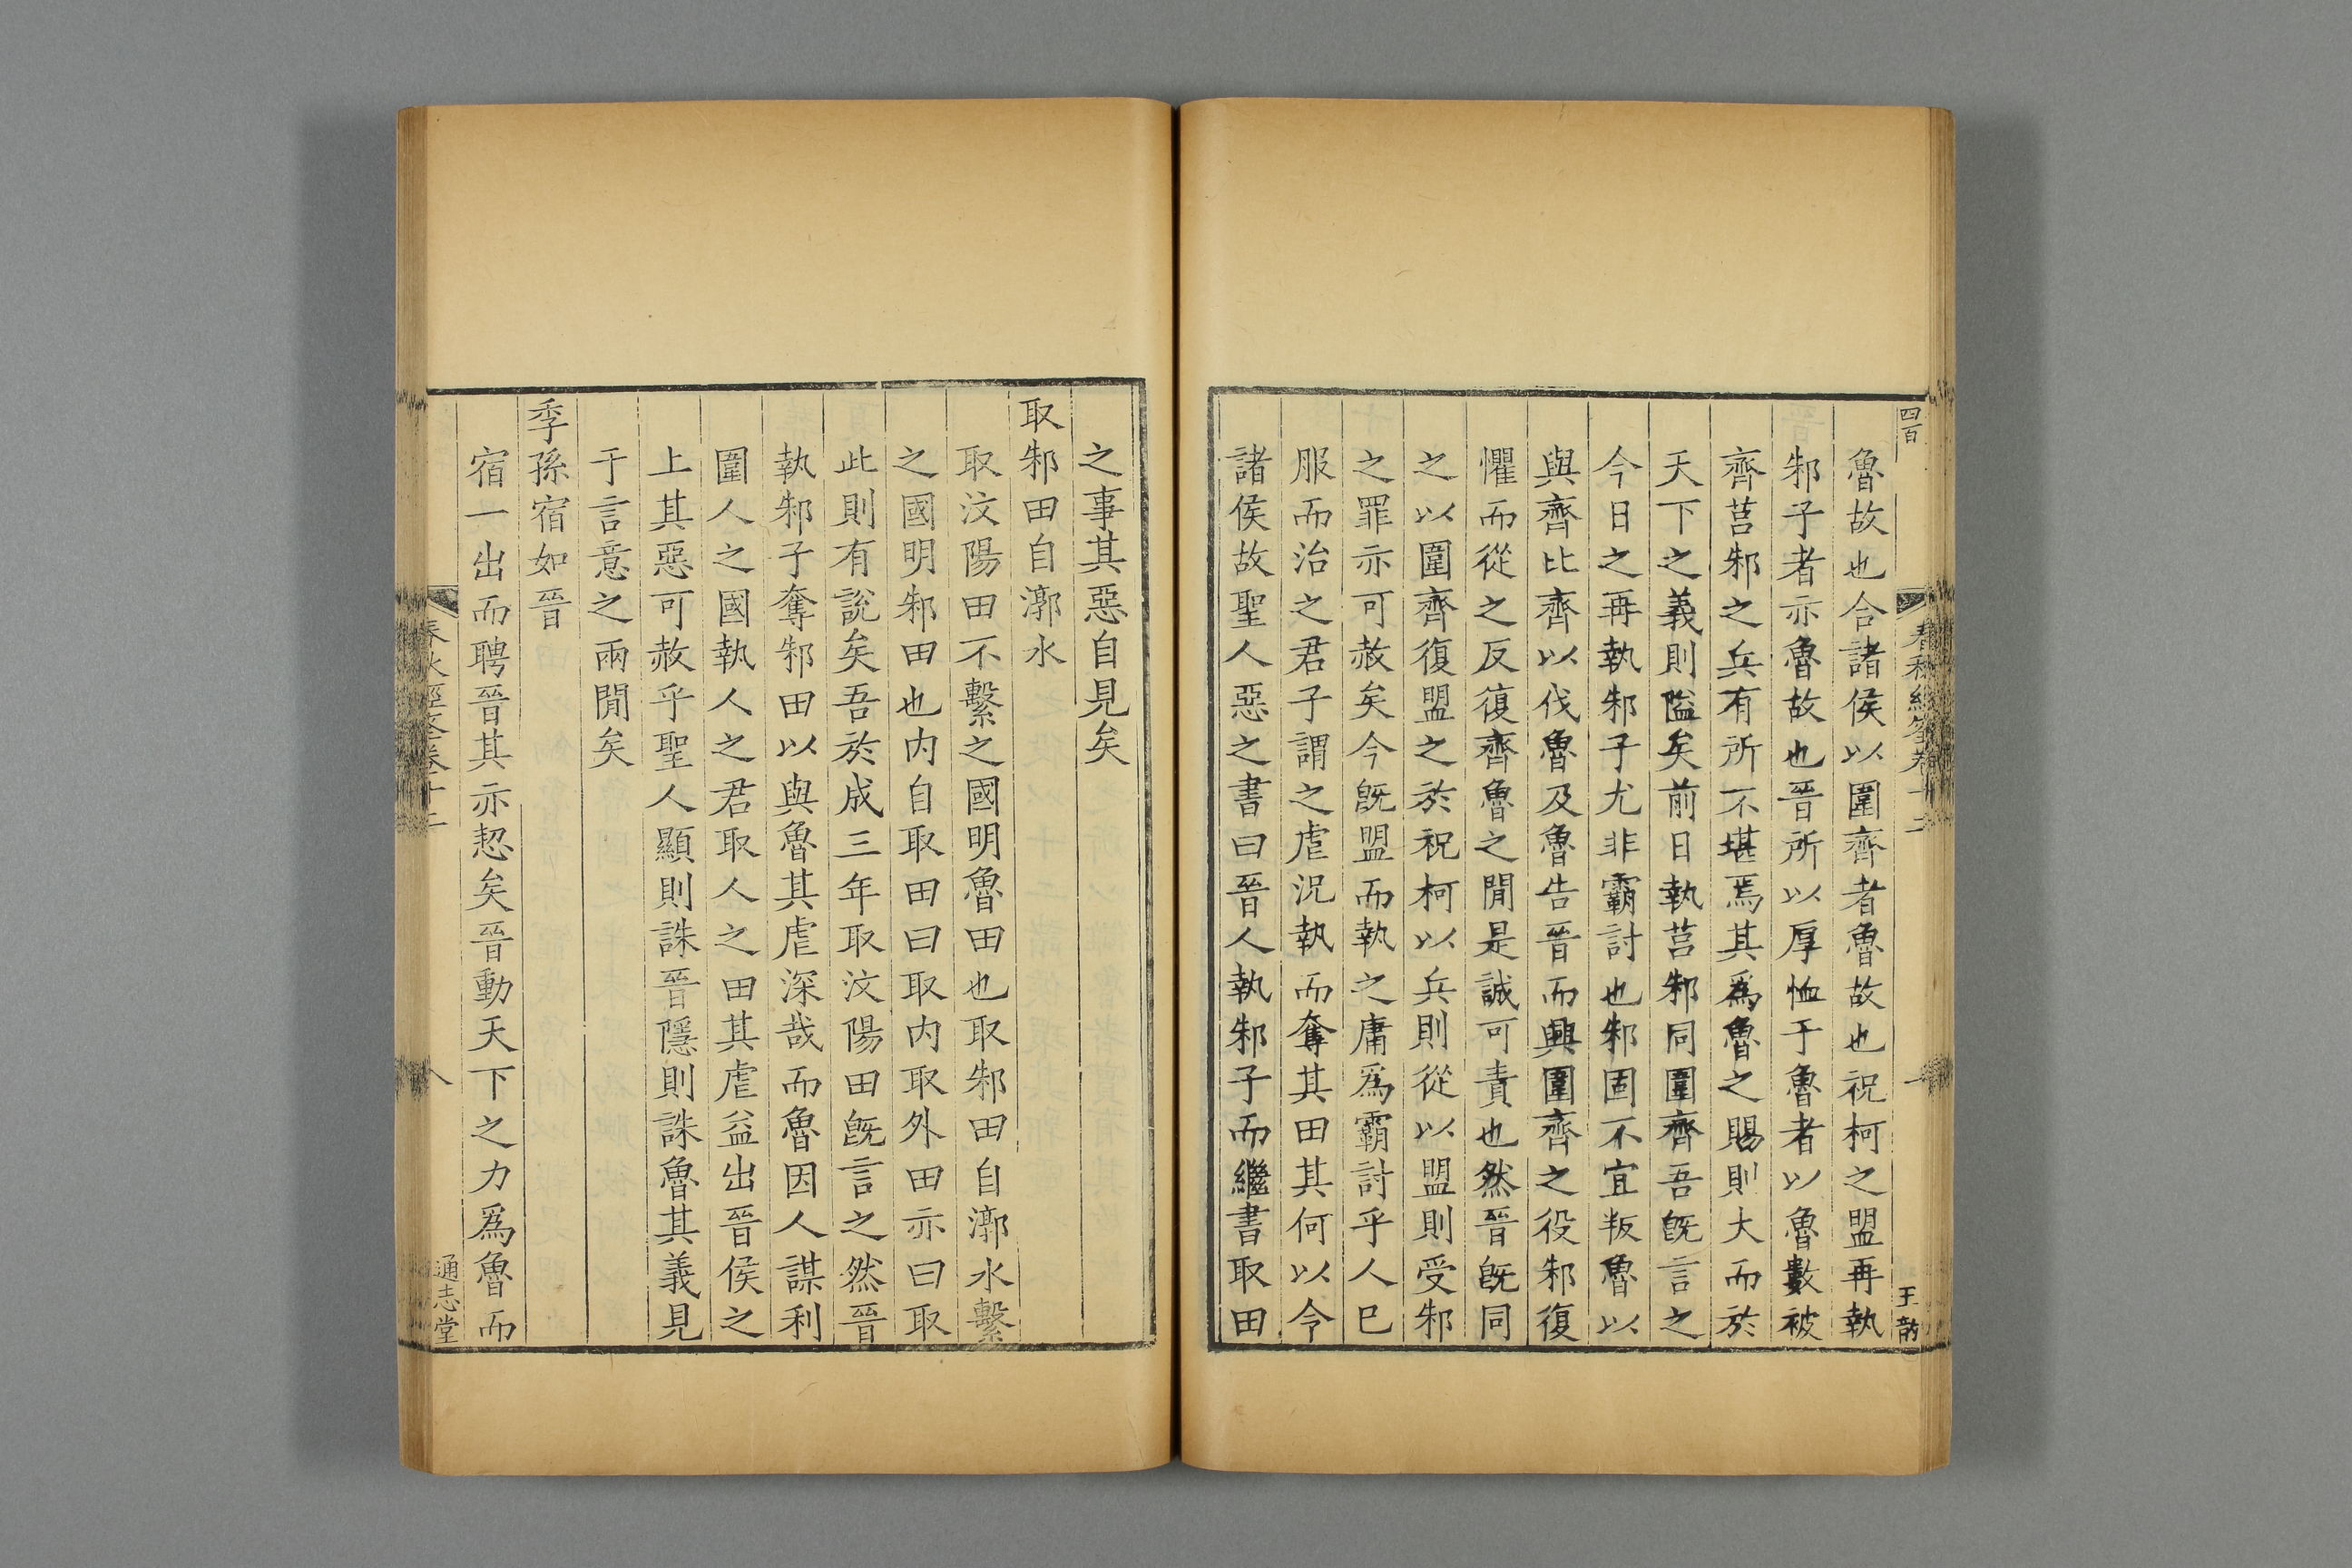 四百
魯故也合諸侯以圍齊者魯故也祝柯之盟再執
邾子者亦魯故也晉所以厚恤于魯者以魯數被
齊莒邾之兵有所不堪焉其爲魯之賜則大而於
天下之義則隘矣前日執莒邾同圍齊吾旣言之
今日之再執邾子尤非霸討也邾固不宜叛魯以
與齊比齊以伐魯及魯告晉而興圍齊之役邾復
懼而從之反復齊魯之閒是誠可責也然晉旣同
之以圍齊復盟之於祝柯以兵則從以盟則受邾
之罪亦可赦矣今旣盟而執之庸爲霸討乎人巳
服而治之君子謂之虐況執而奪其田其何以令
諸侯故聖人惡之書曰晉人執邾子而繼書取田
之事其惡自見矣
取邾田自漷水
取汶陽田不繫之國明魯田也取邾田自漷水繫
之國明邾田也内自取田曰取内取外田亦曰取
此則有說矣吾於成三年取汶陽田旣言之然晉
執邾子奪邾田以與魯其虐深哉而魯因人謀利
圍人之國執人之君取人之田其虐益出晉侯之
上其惡可赦乎聖人顯則誅晉隱則誅魯其義見
于言意之兩閒矣
季孫宿如晉
宿一出而聘晉其亦恝矣晉動天下之力爲魯而
春秋經筌卷十二
八
通志堂